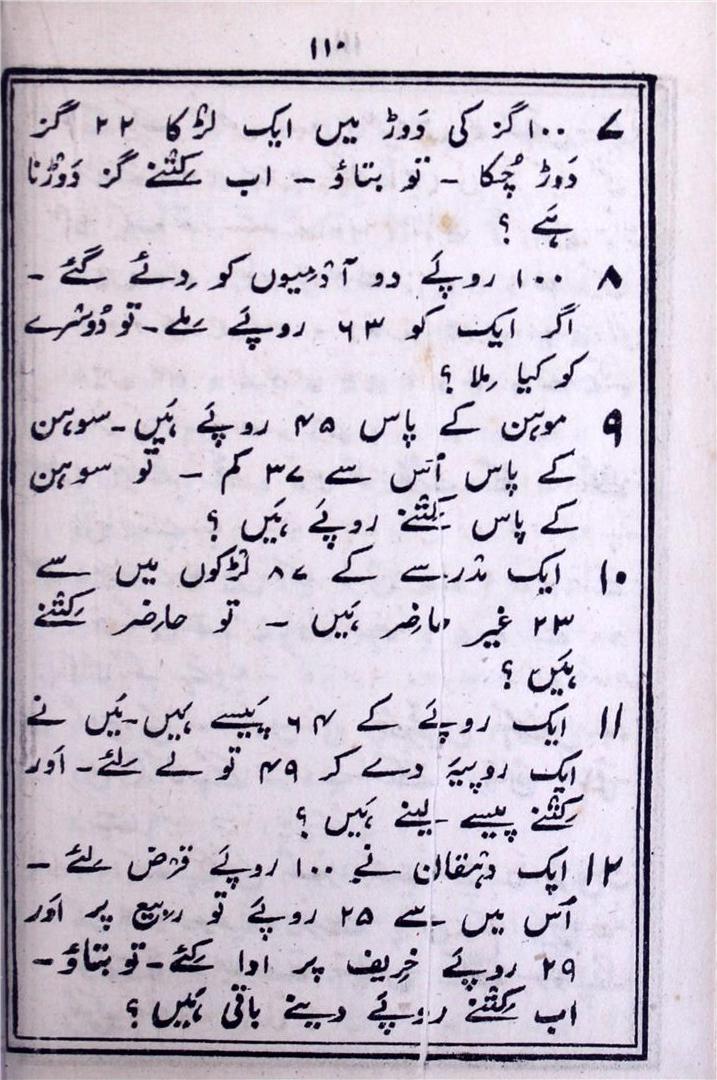 ۱۱۰
۷ ۱۰۰ گز کی دَوڑ میں ایک لڑکا ۲۲ گز
دَوڑ چُکا ۔ تو بتاؤ ۔ اب کِتْنے گز دَوڑنا
ہَے ؟
۸ ۱۰۰ روپَے دو آدْمیوں کو دِئے گئے ۔
اگر ایک کو ۶۳ روپَے مِلے ۔ تو دُوسْرے
کو کیا مِلا ؟
۹ موہن کے پاس ۴۵ روپَے ہَیں ۔ سوہن
کے پاس اُس سے ۳۷ کم ۔ تو سوہن
کے پاس کِتْنے روپَے ہَیں ؟
۱۰ ایک مَدرسے کے ۸۷ لڑکوں میں سے
۲۳ غیر حاضِر ہَیں ۔ تو حاضِر کِتْنے
ہَیں ؟
۱۱ ایک روپَے کے ۶۴ پَیسے ہَیں ۔ مَیں نے
ایک روپیَہ دے کر ۴۹ تو لے لِئے ۔ اَور
کِتْنے پیسے لینے ہَیں ؟
۱۲ ایک دہقان نے ۱۰۰ روپَے قرْض لِئے ۔
اُس میں سے ۲۵ روپَے تو ربیع پر اَور
۲۹ روپَے خرِیف پر ادا کِئے ۔ تو بتاؤ ۔
اب کِتْنے روپَے دینے باقی ہَیں ؟